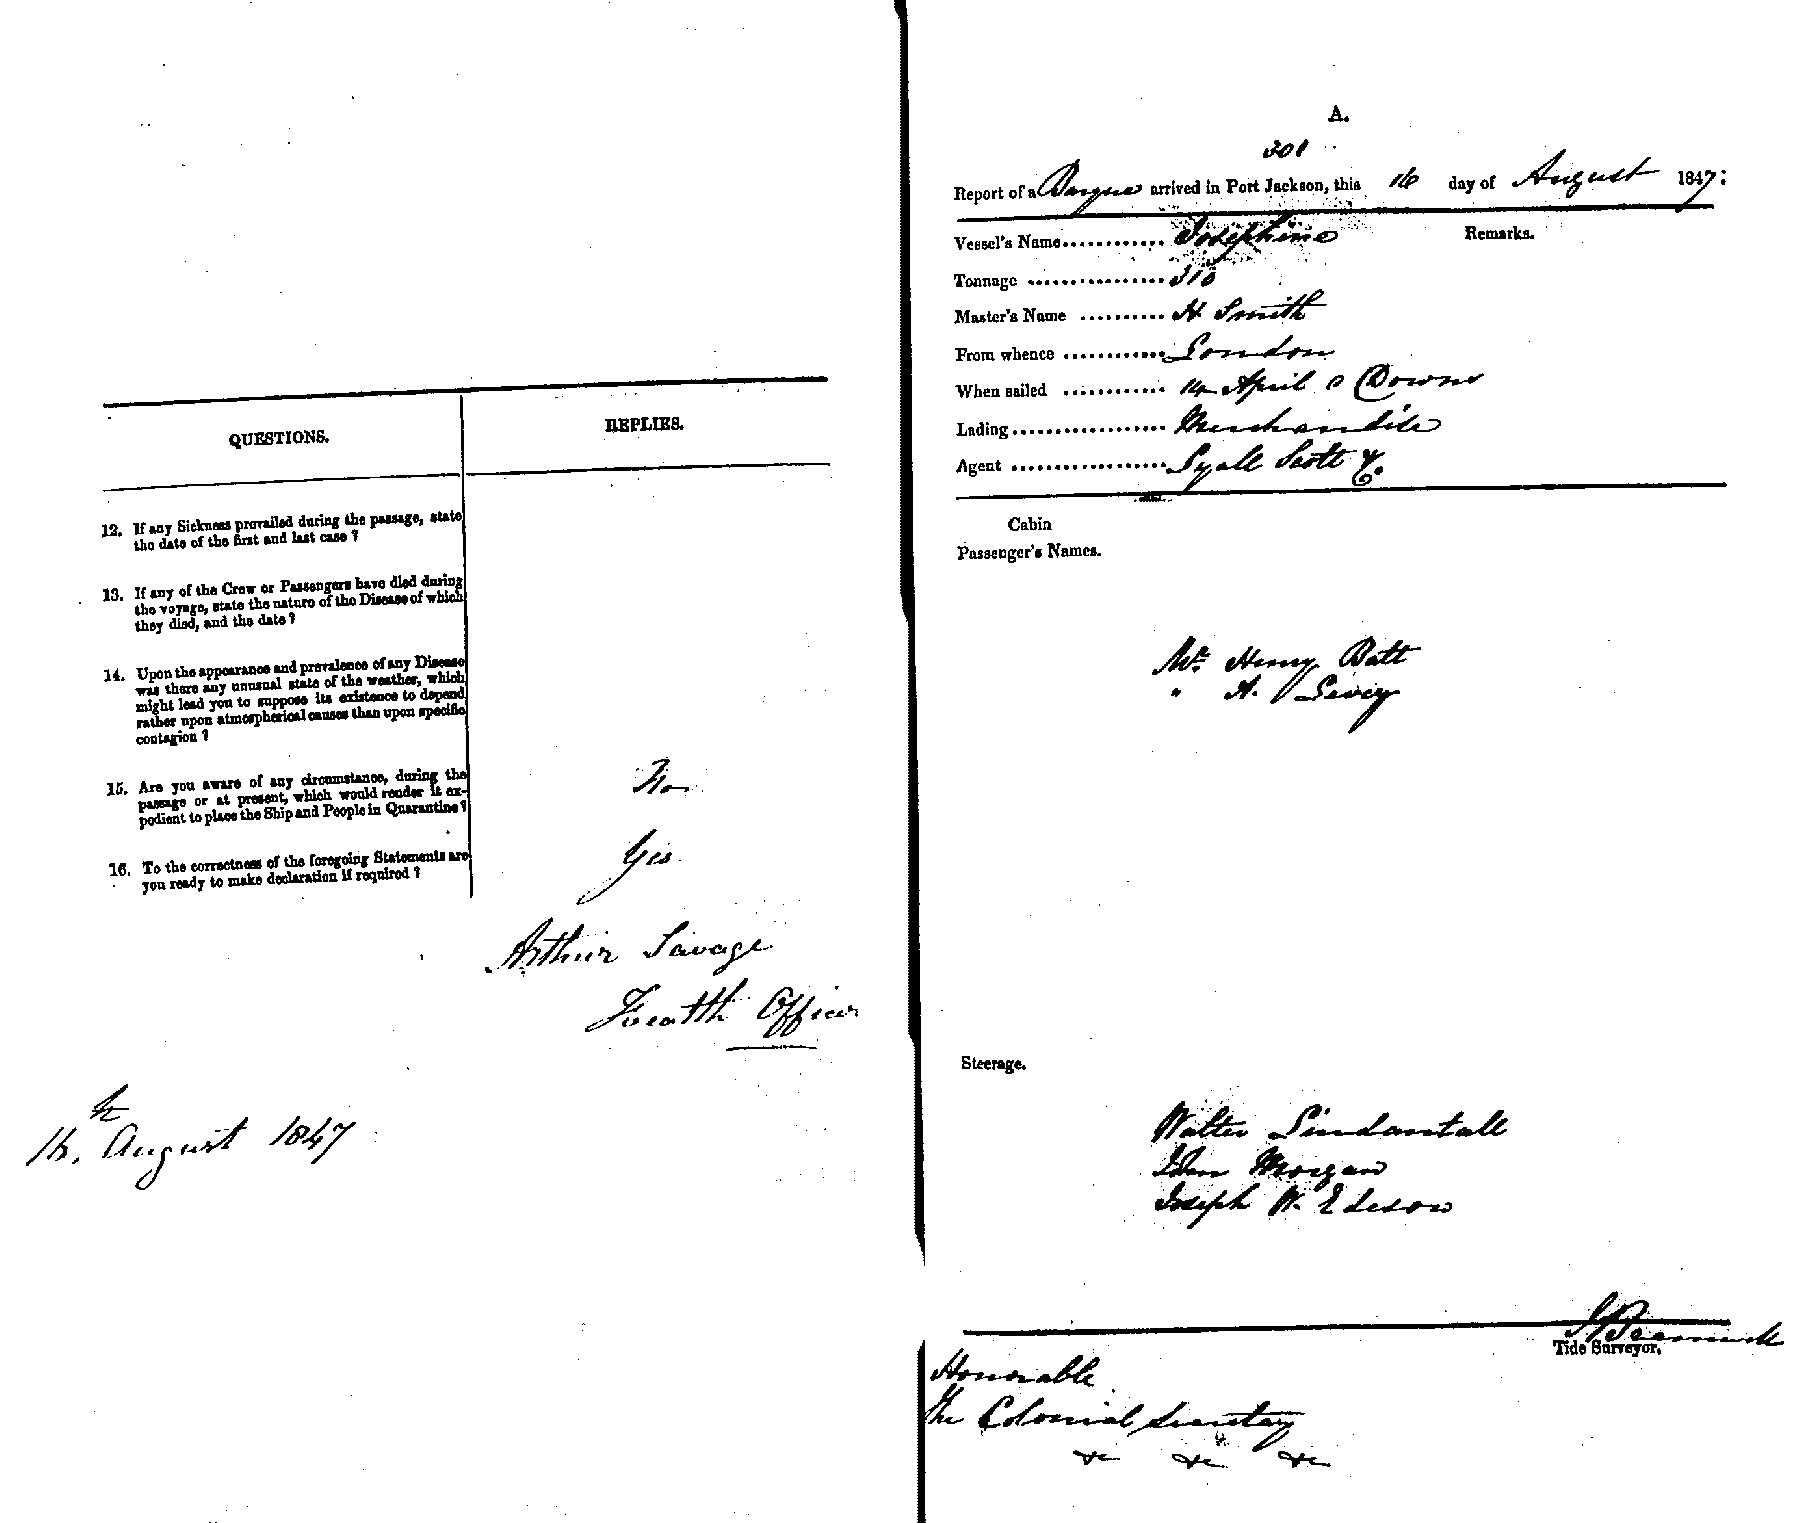 QUESTIONS.
REPLIES.
12. If any Sickness prevailed during the passage, state
the date of the first and last case ?
13. If any of the Crew or Passengers have died during
the voyage, state the nature of the Disease of which
they died, and the date ?
14. Upon the appearance and prevalence of any Disease
was there any unusual state of the weather, which
might lead you to suppose its existence to depend
rather upon atmospherical causes than upon specific
contagion ?
15. Are you aware of any circumstance, during the
passage or at present, which would render it ex-
pedient to place the Ship and People in Quarantine ?
No
16. To the correctness of the foregoing Statements are
you ready to make declaration if required ?
Yes
Arthur Savage
Officer
August 1847
A.
301
Report of a Barque arrived in Port Jackson, this 16 day of August 1847:
Vessel's Name............ Josephine
Remarks.
Tonnage ................
Master's Name .......... H Smith
From whence ............ London
When sailed ............ 14 April Downs
Lading.................. Merchandise
Agent .................. Lyall Scott & Co.
Cabin
Passenger's Names.
Mr. Henry Batt
" A. Levey
Steerage.
Walter
John Morgan
Joseph W. Edeson
Tide Surveyor.
Honorable
The Colonial Secretary
&c &c &c